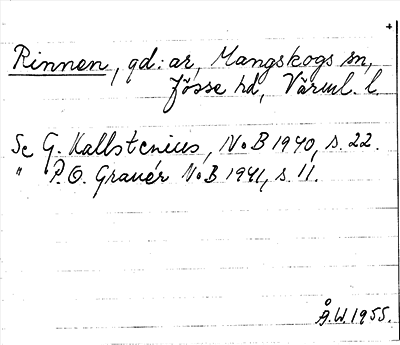 +
Rinnen, gd:ar, Mangskogs sn,
Jösse hd, Värml. l.
Se G. Kallstenius, NoB 1940, s. 22.
" P.O. Graner NoB 1941, s. 11.
Å.W. 1955.